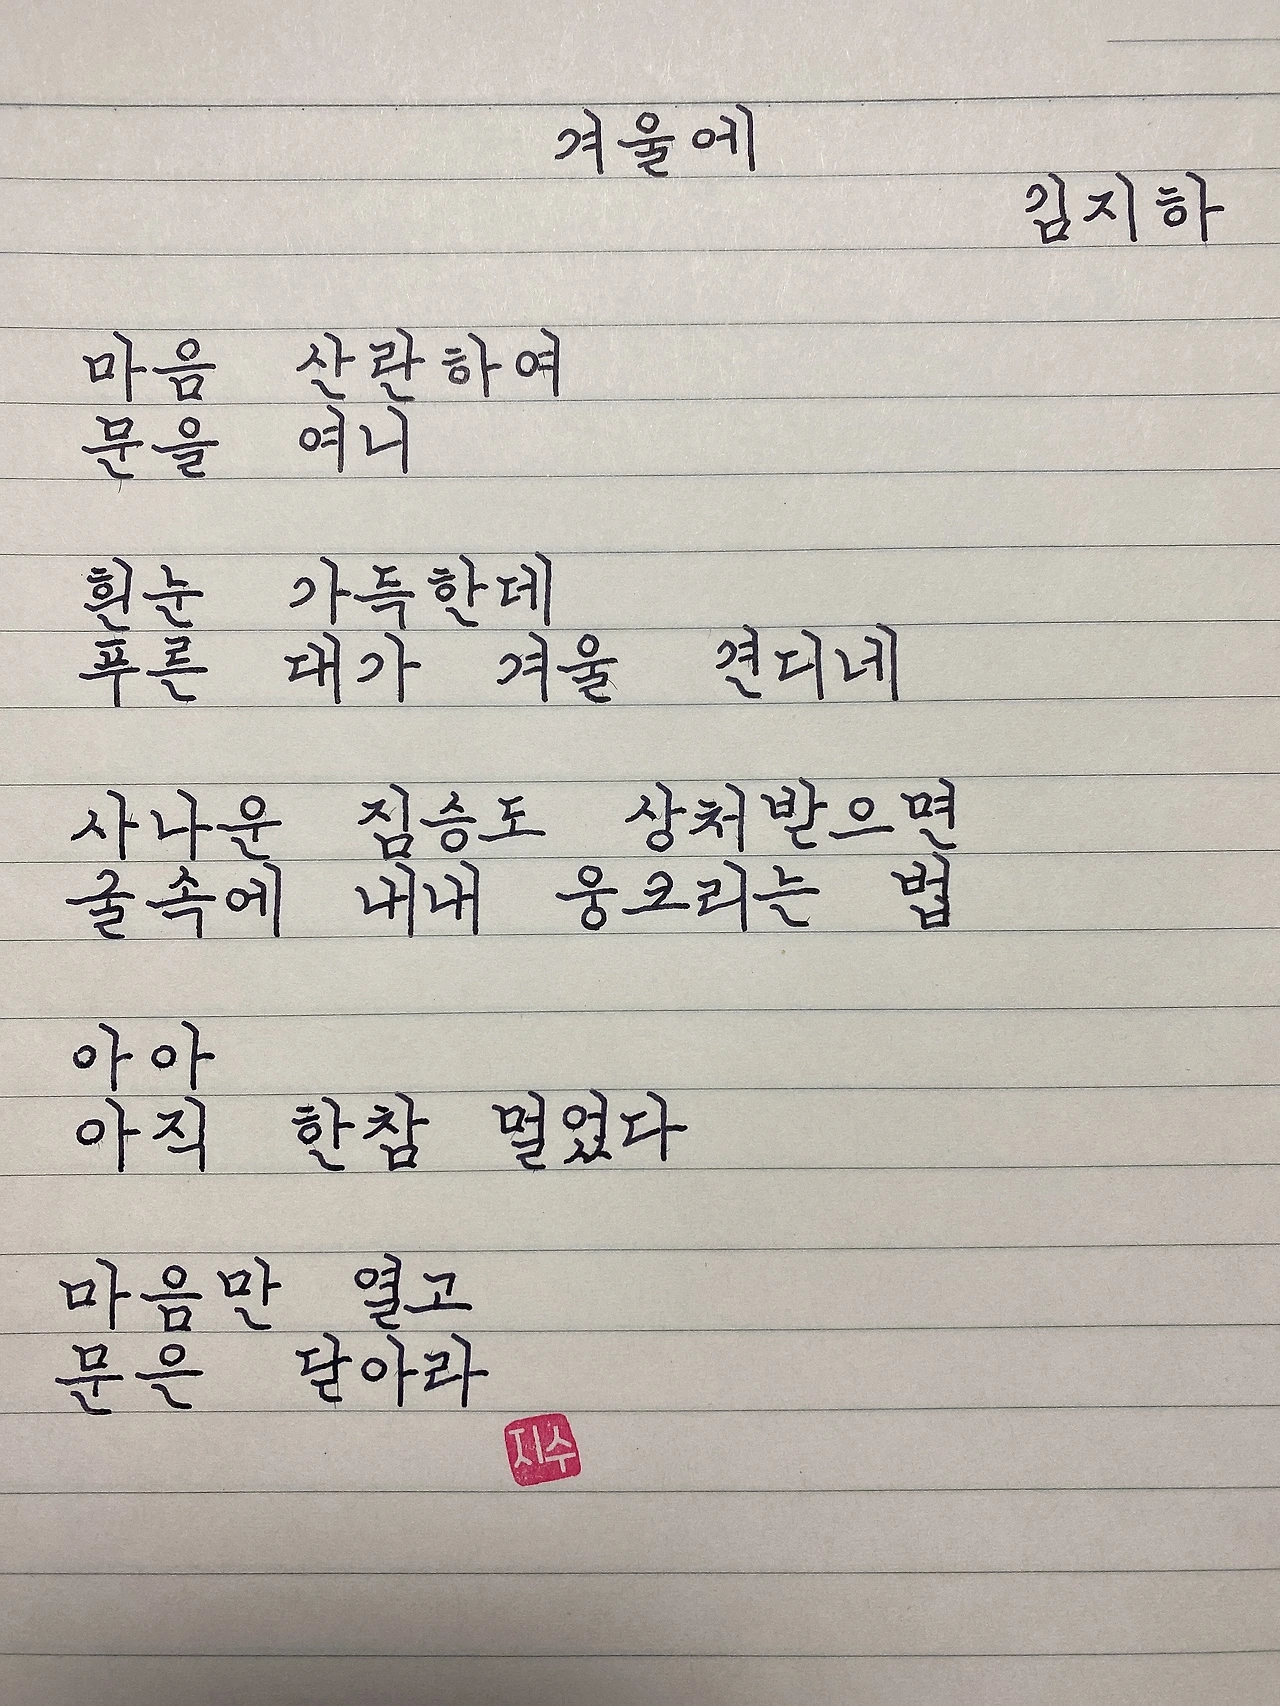 겨울에
김지하
마음 산란하여
문을 여니
흰눈 가득한데
푸른 대가 겨울 견디네
사나운 짐승도 상처받으면
굴속에 내내 웅크리는 법
아아
아직 한참 멀었다
마음만 열고
문은 닫아라
지수